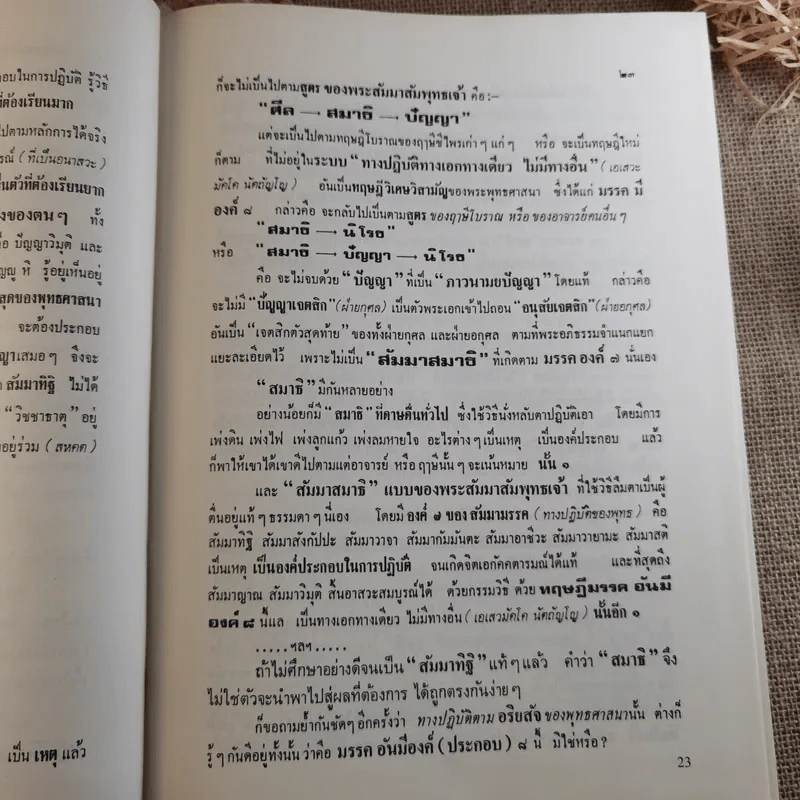 อบในการปฏิบัติ รู้วิธี
ที่ต้องเรียนมาก
ไปตามหลักการได้จริง
รณ์ (ที่เป็นอนาสวะ)
เป็นตัวที่ต้องเรียนยาก
งของตนๆ ทั้ง
คือ ปัญญาวิมุติ และ
ญญู หิ รู้อยู่เห็นอยู่
สุดของพุทธศาสนา
จะต้องประกอบ
ญาเสมอๆ จึงจะ
สัมมาทิฐิ ไม่ได้
"วิชชาธาตุ" อยู่
อยู่ร่วม (สหคต)
เป็น เหตุ แล้ว
๒๓
ก็จะไม่เป็นไปตามสูตร ของพระสัมมาสัมพุทธเจ้า คือ :-
"ศีล → สมาธิ → ปัญญา"
แต่จะเป็นไปตามทฤษฎีโบราณของฤาษีชีไพรเก่าๆ แก่ๆ หรือ จะเป็นทฤษฎีใหม่
ก็ตาม ที่ไม่อยู่ในระบบ "ทางปฏิบัติทางเอกทางเดียว ไม่มีทางอื่น" (เอเสวะ
มัคโค นัตถัญโญ) อันเป็นทฤษฎีวิเศษวิสามัญของพระพุทธศาสนา ซึ่งได้แก่ มรรค มี
องค์ ๘ กล่าวคือ จะกลับไปเป็นตามสูตร ของฤาษีโบราณ หรือ ของอาจารย์คนอื่นๆ
"สมาธิ → นิโรธ"
หรือ "สมาธิ → ปัญญา → นิโรธ"
คือ จะไม่จบด้วย "ปัญญา" ที่เป็น "ภาวนามยปัญญา" โดยแท้ กล่าวคือ
จะไม่มี "ปัญญาเจตสิก" (ฝ่ายกุศล) เป็นตัวพระเอกเข้าไปถอน "อนุสัยเจตสิก" (ฝ่ายอกุศล)
อันเป็น "เจตสิกตัวสุดท้าย" ของทั้งฝ่ายกุศล และฝ่ายอกุศล ตามที่พระอภิธรรมจำแนกแยก
แยะละเอียดไว้ เพราะไม่เป็น "สัมมาสมาธิ" ที่เกิดตาม มรรค องค์ ๗ นั่นเอง
"สมาธิ" มีกันหลายอย่าง
อย่างน้อยก็มี "สมาธิ" ที่ดาษดื่นทั่วไป ซึ่งใช้วิธีนั่งหลับตาปฏิบัติเอา โดยมีการ
เพ่งดิน เพ่งไฟ เพ่งลูกแก้ว เพ่งลมหายใจ อะไรต่างๆ เป็นเหตุ เป็นองค์ประกอบ แล้ว
ก็พาให้เขาได้เขาดีไปตามแต่อาจารย์ หรือ ฤาษีนั้นๆ จะเน้นหมาย นั้น ๑
และ "สัมมาสมาธิ" แบบของพระสัมมาสัมพุทธเจ้า ที่ใช้วิธีลืมตาเป็นผู้
ตื่นอยู่แท้ๆ ธรรมดาๆ นี่เอง โดยมี องค์ ๗ ของ สัมมามรรค (ทางปฏิบัติของพุทธ) คือ
สัมมาทิฐิ สัมมาสังกัปปะ สัมมาวาจา สัมมากัมมันตะ สัมมาอาชีวะ สัมมาวายามะ สัมมาสติ
เป็นเหตุ เป็นองค์ประกอบในการปฏิบัติ จนเกิดจิตเอกัคคตารมณ์ได้แท้ และที่สุดถึง
สัมมาญาณ สัมมาวิมุติ สิ้นอาสวะสมบูรณ์ได้ ด้วยกรรมวิธี ด้วย ทฤษฎีมรรค อันมี
องค์ ๘ นี้แล เป็นทางเอกทางเดียว ไม่มีทางอื่น (เอเสวมัคโค นัตถัญโญ) นั้นอีก ๑
.....ฯลฯ.....
ถ้าไม่ศึกษาอย่างดีจนเป็น "สัมมาทิฐิ" แท้ๆ แล้ว คำว่า "สมาธิ" จึง
ไม่ใช่ตัวจะนำพาไปสู่ผลที่ต้องการ ได้ถูกตรงกันง่ายๆ
ก็ขอถามย้ำกันชัดๆ อีกครั้งว่า ทางปฏิบัติตาม อริยสัจ ของพุทธศาสนานั้น ต่างก็
รู้ๆ กันดีอยู่ทั้งนั้น ว่าคือ มรรค อันมีองค์ (ประกอบ) ๘ นี้ มิใช่หรือ?
23